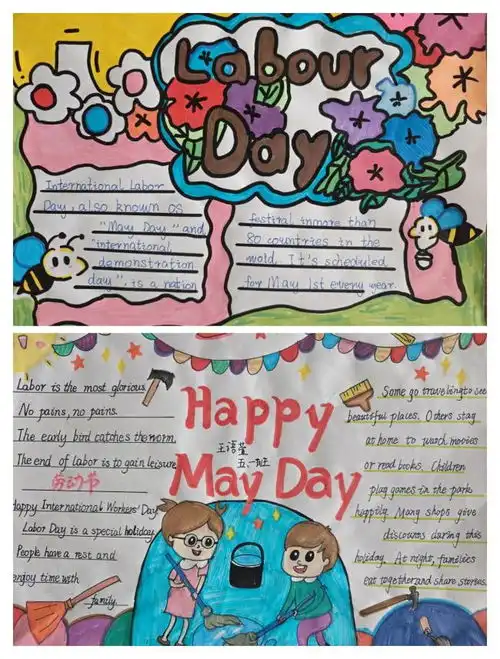 Labour
Day
International Labor
Day, also known as
"May Day" and
"international
demonstration
day", is a nation
festival inmore than
80 countries in the
world. It's scheduled
for May 1st every year.
Happy
May Day
王语萱
五、一班
Labor is the most glorious.
No pains, no pains.
The early bird catches the worm.
The end of labor is to gain leisure
劳动节
Happy International Workers' Day!
Labor Day is a special holiday.
People have a rest and
enjoy time with
family.
Some go traveling to see
beautiful places. Others stay
at home to watch movies
or read books. Children
play games in the park
happily. Many shops give
discounts during this
holiday. At night, families
eat together and share stories.